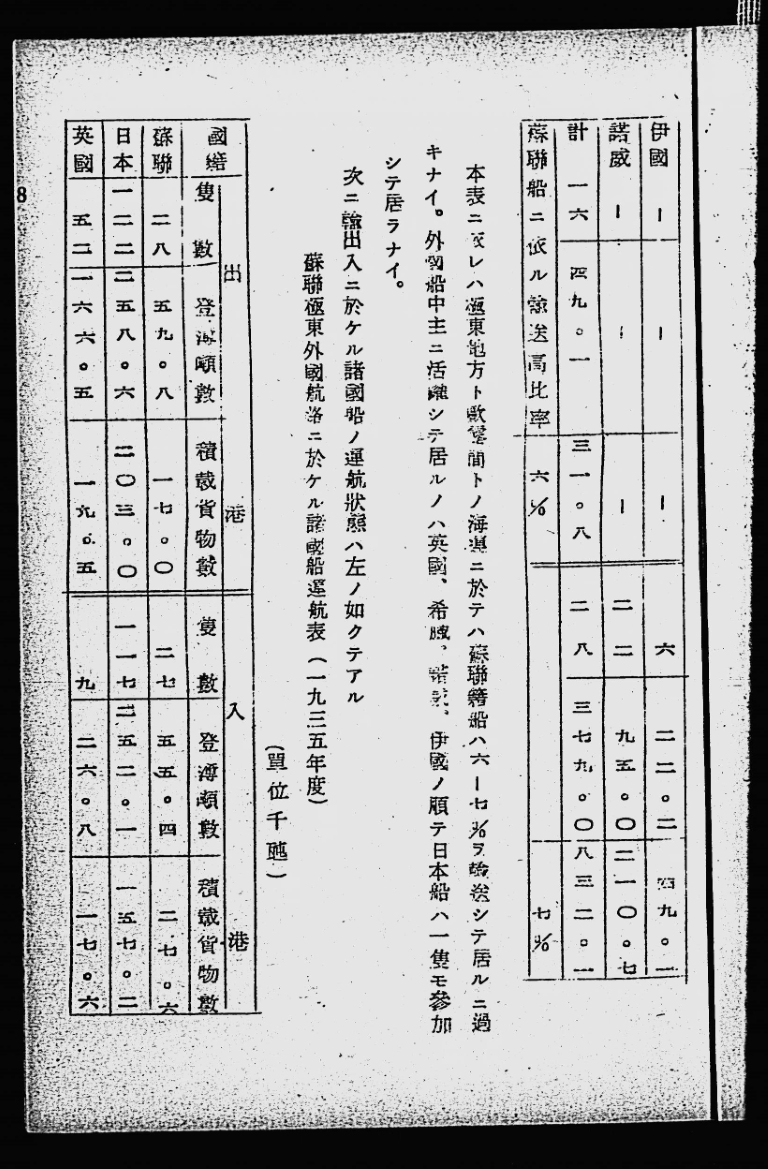 伊國 ー ー ー 六 二二。二 四九。一
諾威 ー ー ー 二二 九五。〇 二一〇。七
計 一六 四九。一 三一。八 二八 三七九。〇 八三二。一
蘇聯船ニ依ル輸送高比率 六% 七%
本表ニ依レハ極東地方ト歐露間トノ海運ニ於テハ蘇聯籍船ハ六ー七%ヲ輸送シテ居ルニ過
キナイ。外國船中主ニ活躍シテ居ルノハ英國、希臘、諾威、伊國ノ順テ日本船ハ一隻モ參加
シテ居ラナイ。
次ニ輸出入ニ於ケル諸國船ノ運航狀態ハ左ノ如クテアル
蘇聯極東外國航路ニ於ケル諸國船運航表(一九三五年度)
(單位千瓲)
出港 入港
國籍 隻數 登簿噸數 積載貨物數 隻數 登簿噸數 積載貨物數
蘇聯 二八 五九。八 一七。〇 二七 五五。四 二七。六
日本 一二二 二五八。六 二〇三。〇 一一七 二五二。一 一五七。二
英國 五二 一六六。五 一九。五 九 二六。八 一七。六
8